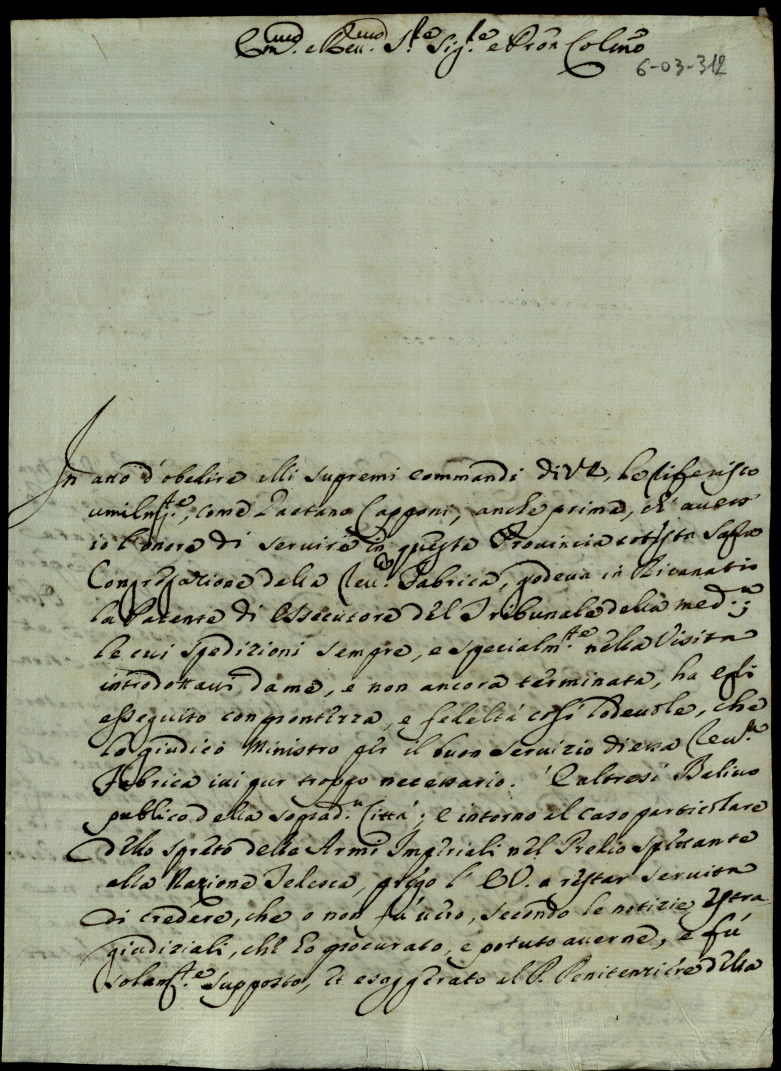 Em̃o. e Reu.mo S.re Sig.re e Pron̄ Col̃mo
6-03-312
In atto d'obedire alli supremi commandi di V.E., le riferisco
umilm.te, come Gaetano Capponi, anche prima, ch'auess
io l'onore di seruire in questa Prouincia cotesta Sagra
Congregazione della Reu. Fabrica, godeua in Ricanati
la Patente di Essecutore del Tribunale della med.a;
le cui spedizioni sempre, e specialm.te nella Visita
introdottaui da me, e non ancora terminata, ha egli
esseguito con prontezza, e fedeltà così lodeuole, che
lo giudico Ministro per il buon seruizio di essa Reu.a
Fabrica iui pur troppo necessario. È altresì Baliuo
publico della soprad.a Città; e intorno al caso particolare
dello spreto delle Armi Imperiali nel Predio spettante
alla Nazione Tedesca, prego l'E.V. a restar seruita
di credere, che o non fù uero, secondo le notizie estra-
giudiziali, che hò procurato, e potuto auerne, e fù
solam.te supposto, et esaggerato al P. Penitenziere della